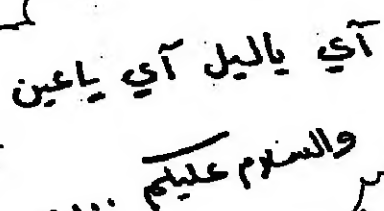 آي ياليل آي ياعين
والسلام عليكم ....